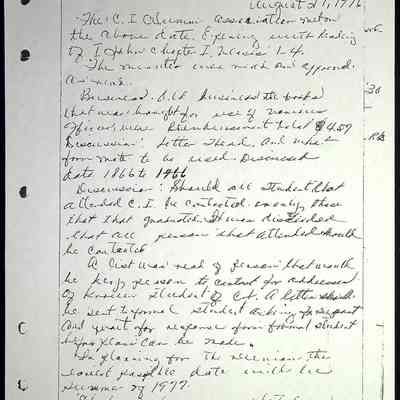 August 21, 1976
The C. I Alumni association met on
the above date. Opening with reading
of I John Chapter I, verses 1-4.
The minutes were read and approved.
as read.
Business. Old business the books
that was bought for use of various
Officers, were Reimbursement total $4.59
Discussion: letter Head, and what
form note to be used. Discussed
date 1866 to 1966
Discussion: Should all student that
attended C.I. be contacted or only those
that that graduated. It was decided
that all person that attended should
be contacted
A list was read of person that would
be key person to contact for addresses
of known student of C.I. A letter should
be sent to formal student asking for support
and wait for response from formal student
before plans can be made.
In planning for the reunion, the
earliest possible date will be
summer of 1977.